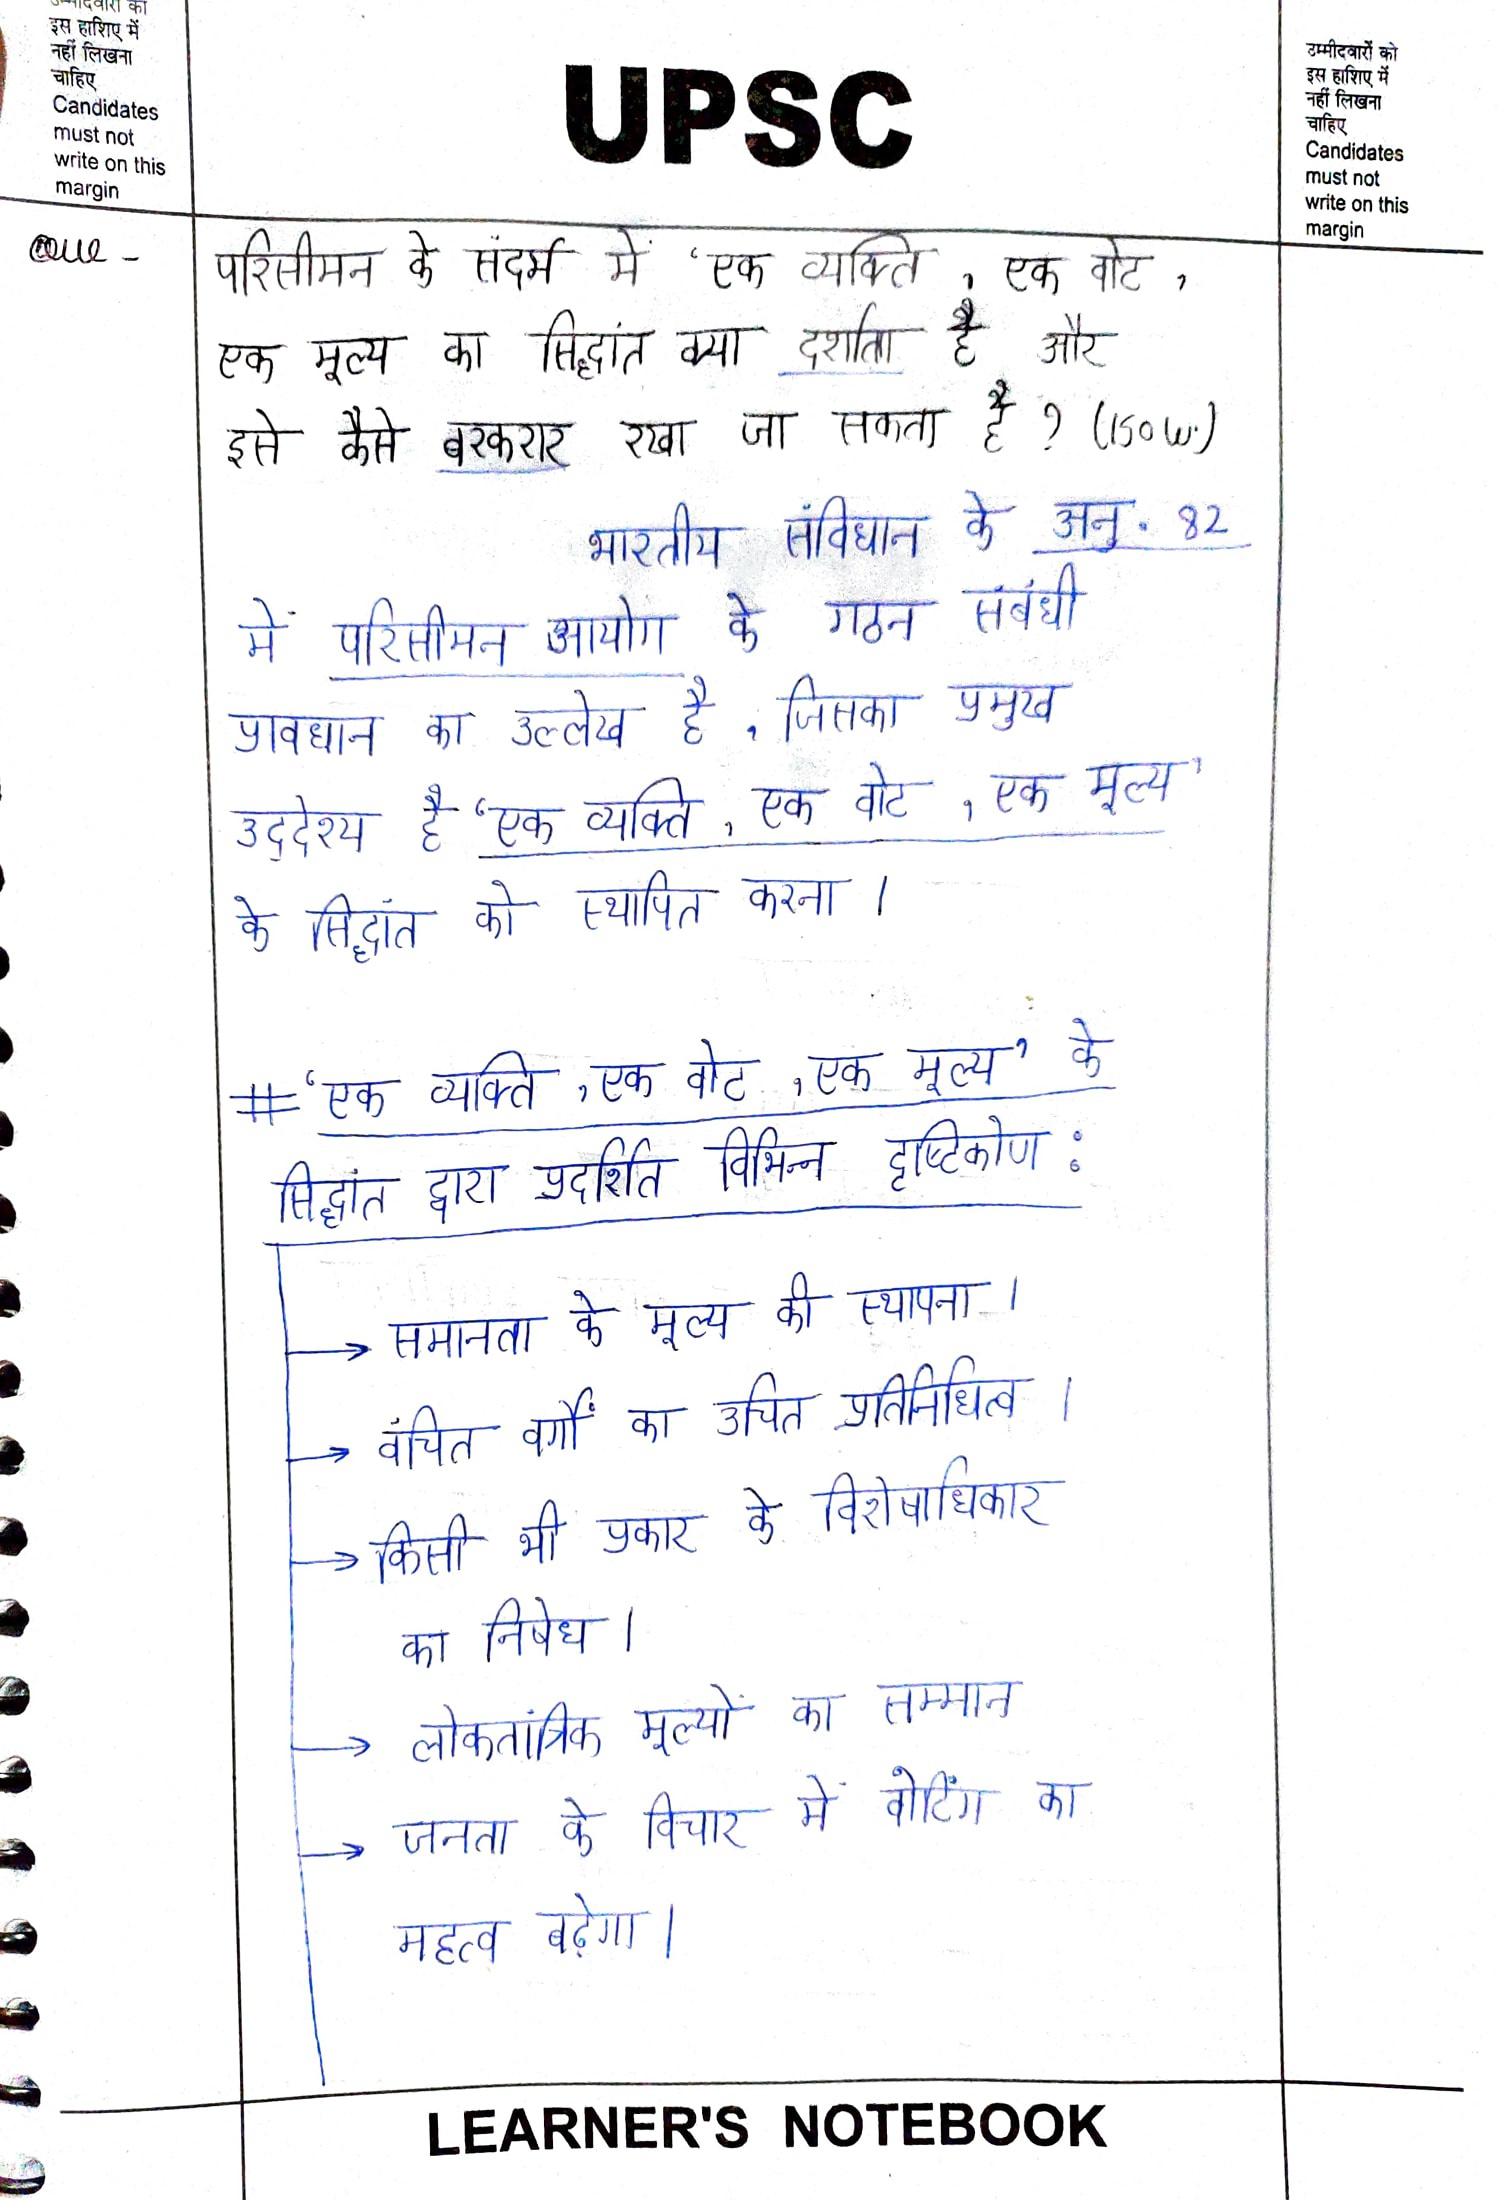 उम्मीदवारों को
इस हाशिए में
नहीं लिखना
चाहिए
Candidates
must not
write on this
margin
UPSC
उम्मीदवारों को
इस हाशिए में
नहीं लिखना
चाहिए
Candidates
must not
write on this
margin
Que - परिसीमन के संदर्भ में 'एक व्यक्ति, एक वोट,
एक मूल्य का सिद्धांत क्या दर्शाता है और
इसे कैसे बरकरार रखा जा सकता है ? (150 W.)
भारतीय संविधान के अनु. 82
में परिसीमन आयोग के गठन संबंधी
प्रावधान का उल्लेख है, जिसका प्रमुख
उद्देश्य है 'एक व्यक्ति, एक वोट, एक मूल्य'
के सिद्धांत को स्थापित करना ।
# 'एक व्यक्ति, एक वोट, एक मूल्य' के
सिद्धांत द्वारा प्रदर्शित विभिन्न दृष्टिकोण :
→ समानता के मूल्य की स्थापना ।
→ वंचित वर्गों का उचित प्रतिनिधित्व ।
→ किसी भी प्रकार के विशेषाधिकार
का निषेध ।
→ लोकतांत्रिक मूल्यों का सम्मान
→ जनता के विचार में वोटिंग का
महत्व बढ़ेगा ।
LEARNER'S NOTEBOOK